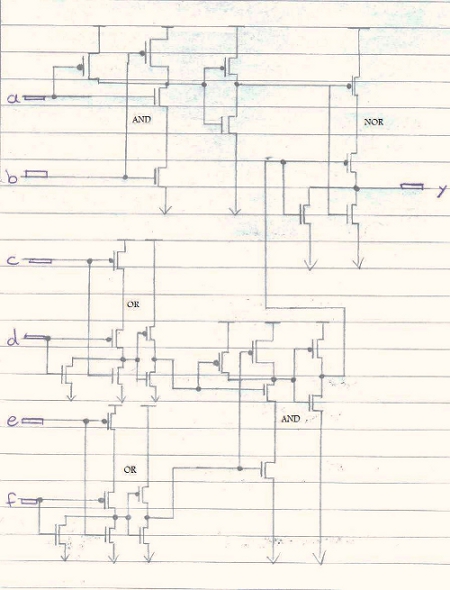 a
AND
NOR
b
y
c
OR
d
e
AND
OR
f